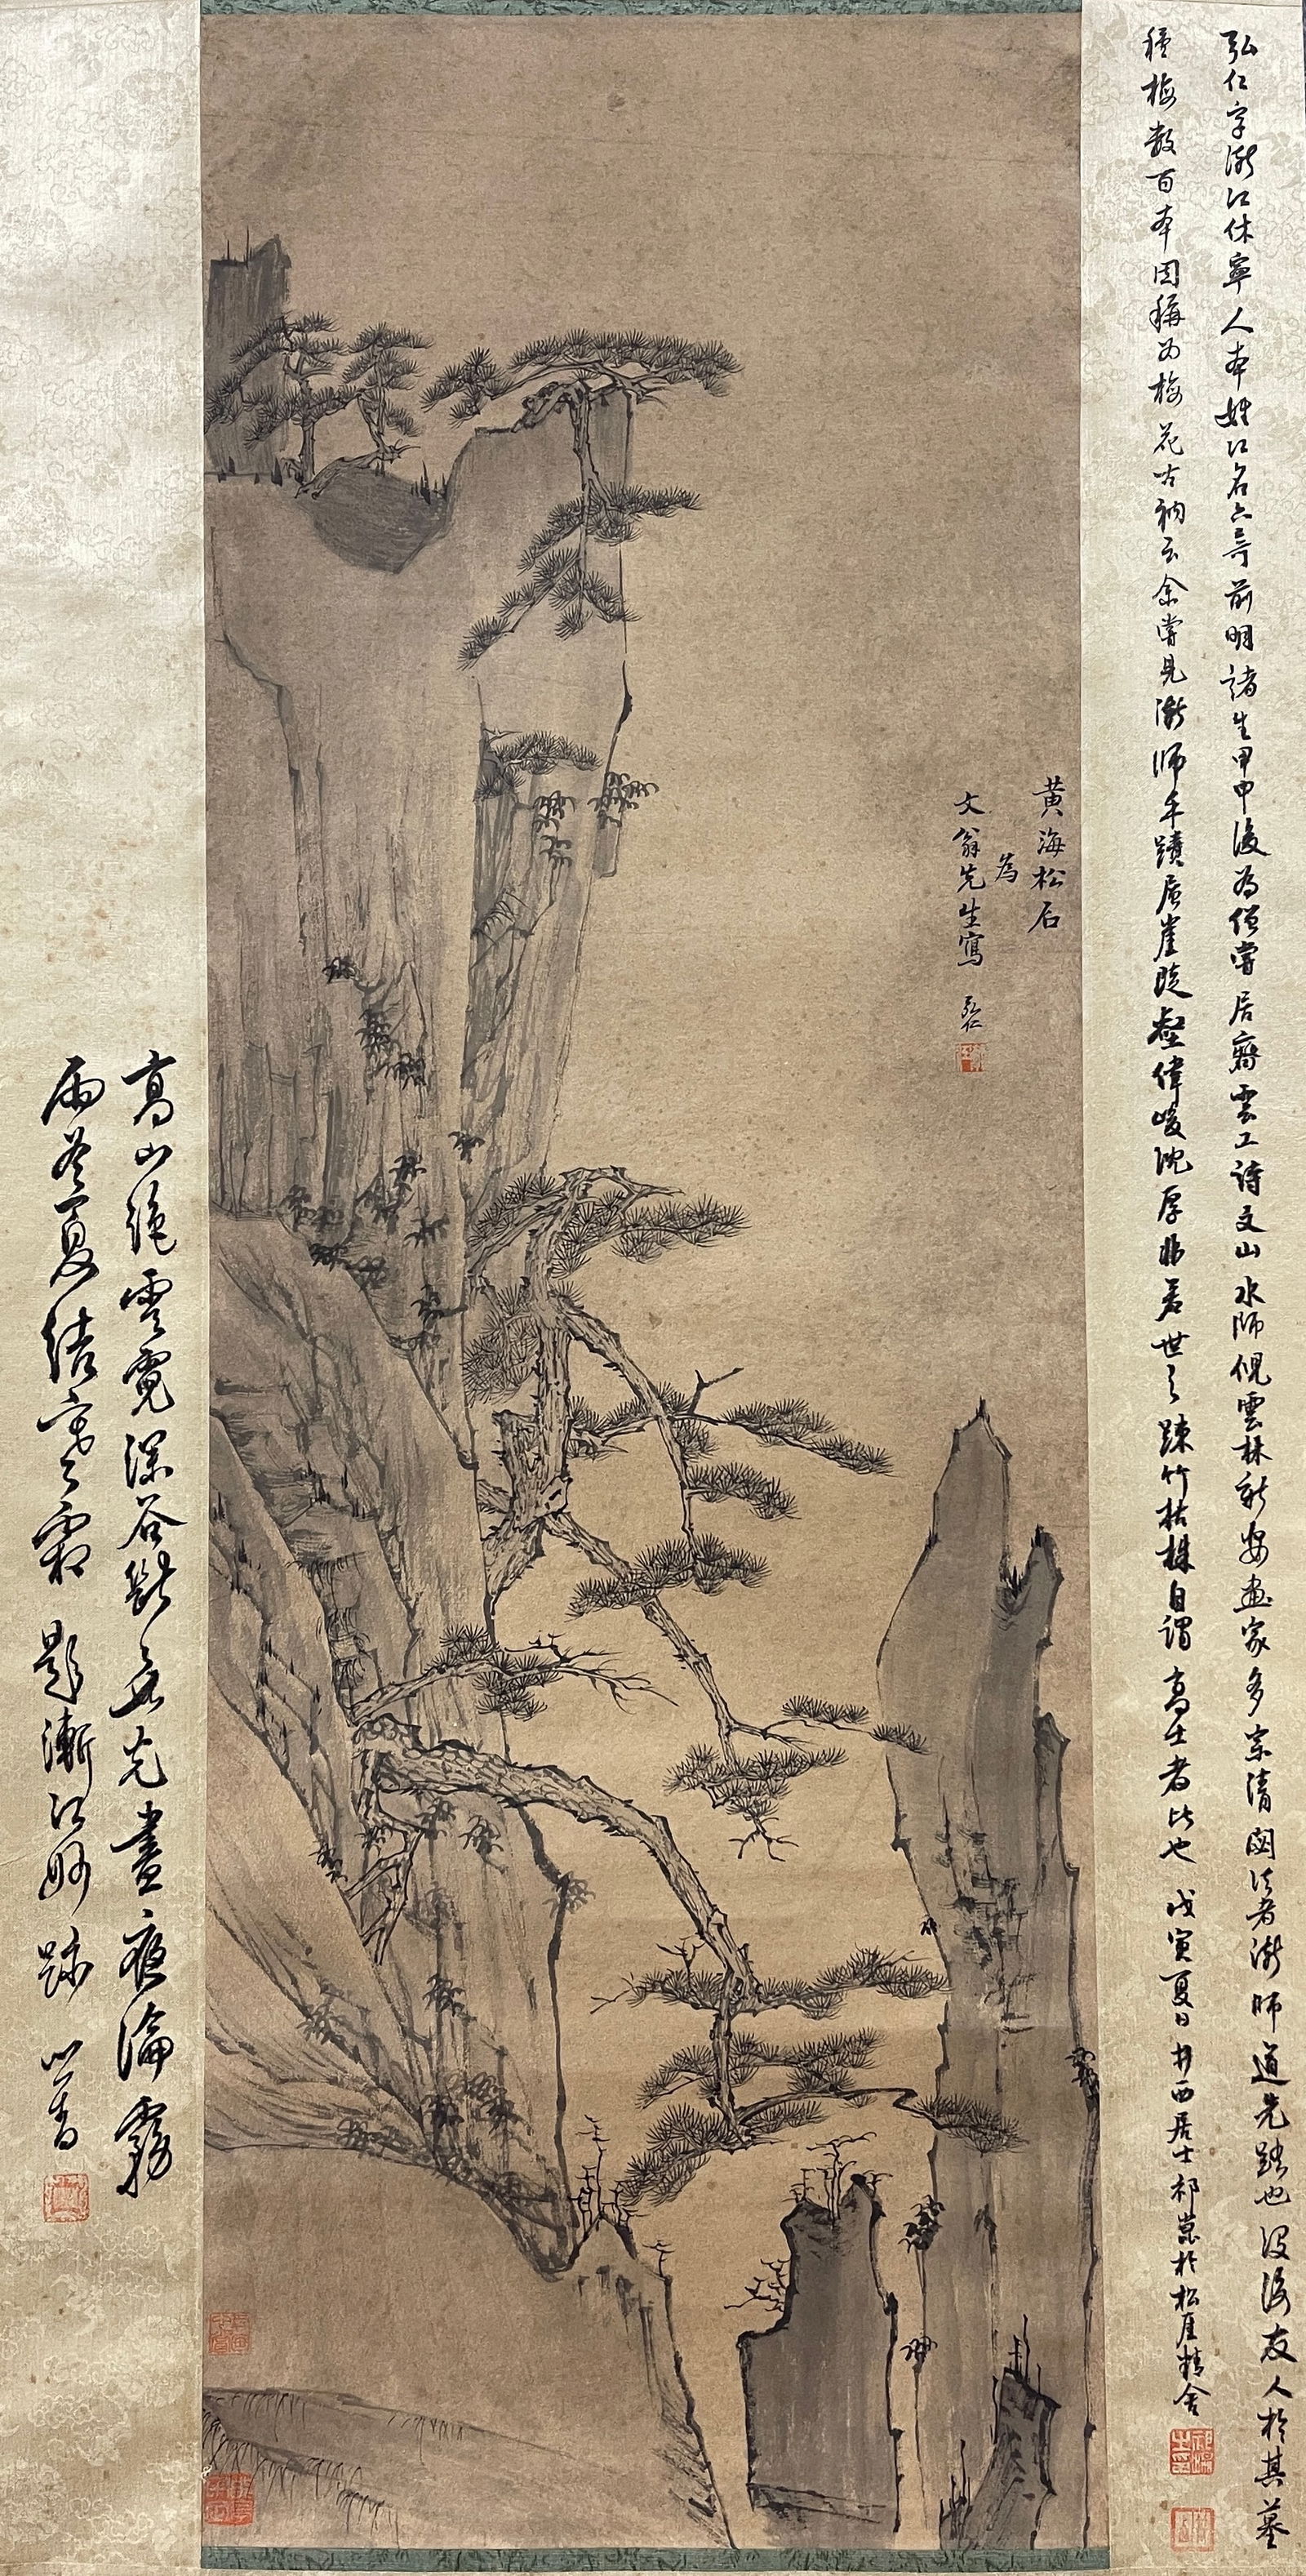 弘仁字漸江休寧人本姓江名六奇前明諸生甲申後為僧嘗居齊雲工詩文山水師倪雲林新安畫家多宗清閟法者漸師道先路也沒後友人於其墓
種梅數百本因稱為梅花古衲云余嘗見漸師手蹟層崖陡壑偉峻沈厚非若世之疎竹枯株自謂高士者比也 戊寅夏日井西居士祁崑於松厓精舍
黃海松石
為
文翁先生寫 弘仁
高山絕雲霓深谷斷無光晝夜淪霧
雨冬夏結寒霜 題漸江妙跡 心畬